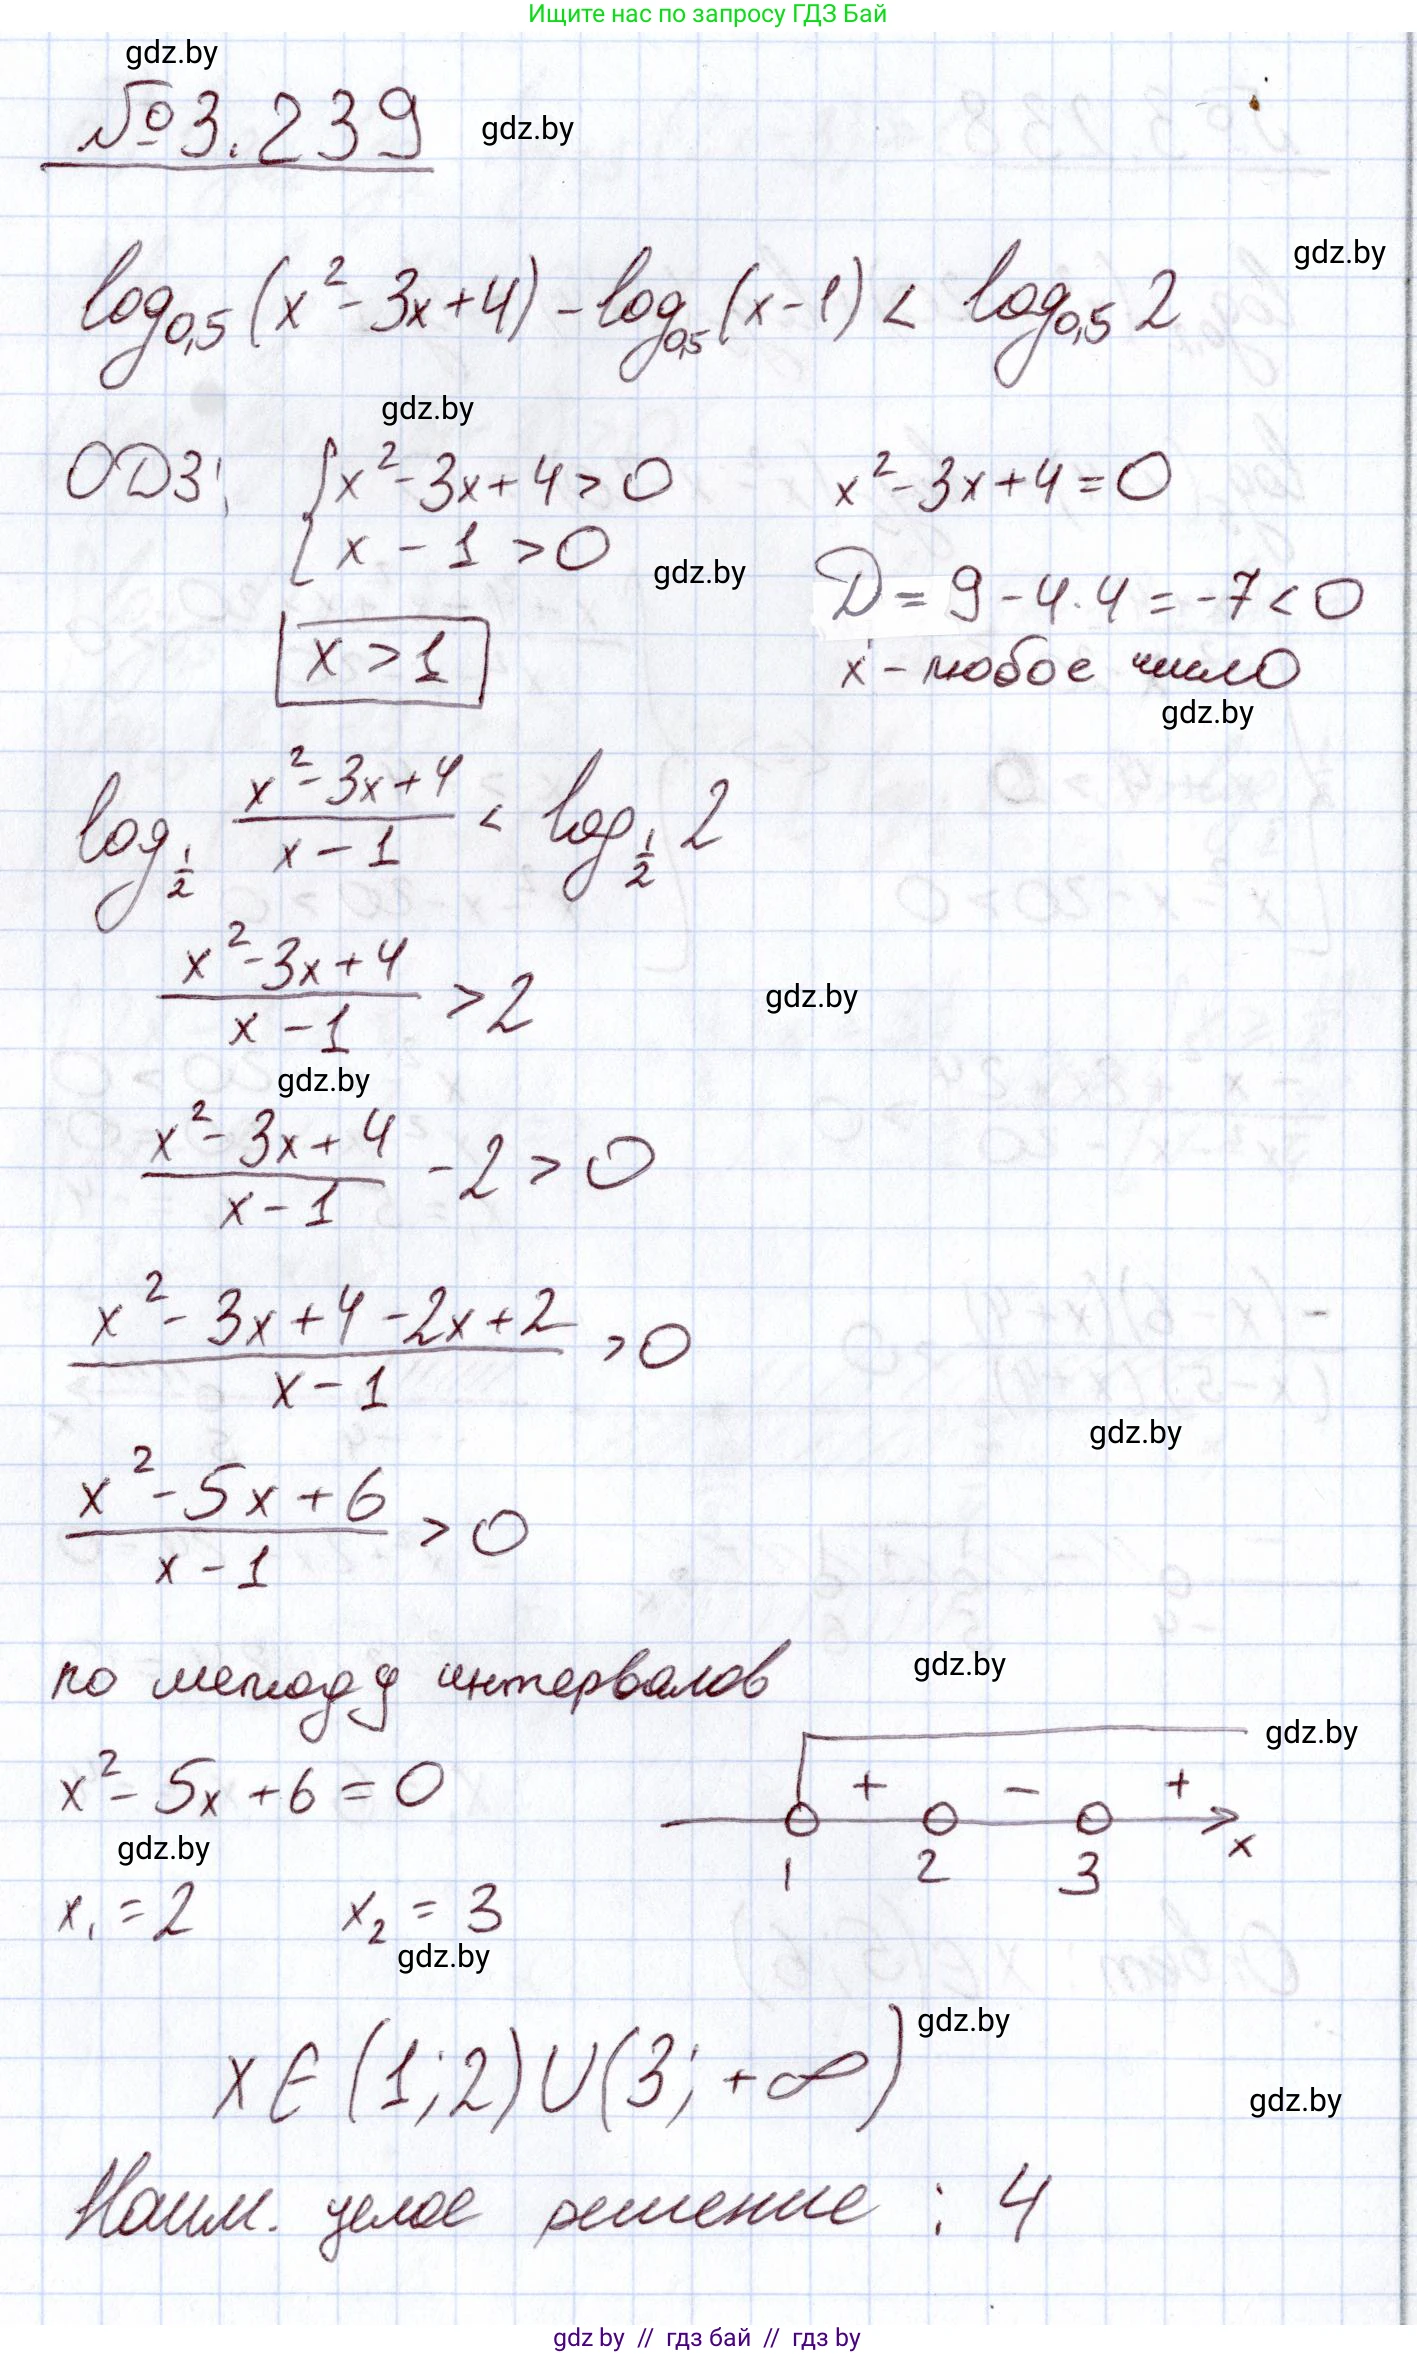 Ищите нас по запросу ГДЗ Бай
gdz.by
№3.239
gdz.by
gdz.by
log₀,₅(x²-3x+4)-log₀,₅(x-1)< log₀,₅2
gdz.by
ОДЗ: { x²-3x+4>0
x-1>0
x²-3x+4=0
gdz.by
D=9-4·4=-7<0
x>1
x-любое число
gdz.by
log_{1/2} (x²-3x+4)/(x-1) < log_{1/2} 2
(x²-3x+4)/(x-1) >2
gdz.by
gdz.by
(x²-3x+4)/(x-1) -2>0
(x²-3x+4-2x+2)/(x-1) >0
gdz.by
(x²-5x+6)/(x-1) >0
по методу интервалов
gdz.by
gdz.by
x²-5x+6=0
+ - +
1 2 3 x
gdz.by
x₁=2 x₂=3
gdz.by
gdz.by
x∈(1;2)∪(3;+∞)
gdz.by
Наим. целое решение : 4
gdz.by // гдз бай // гдз by